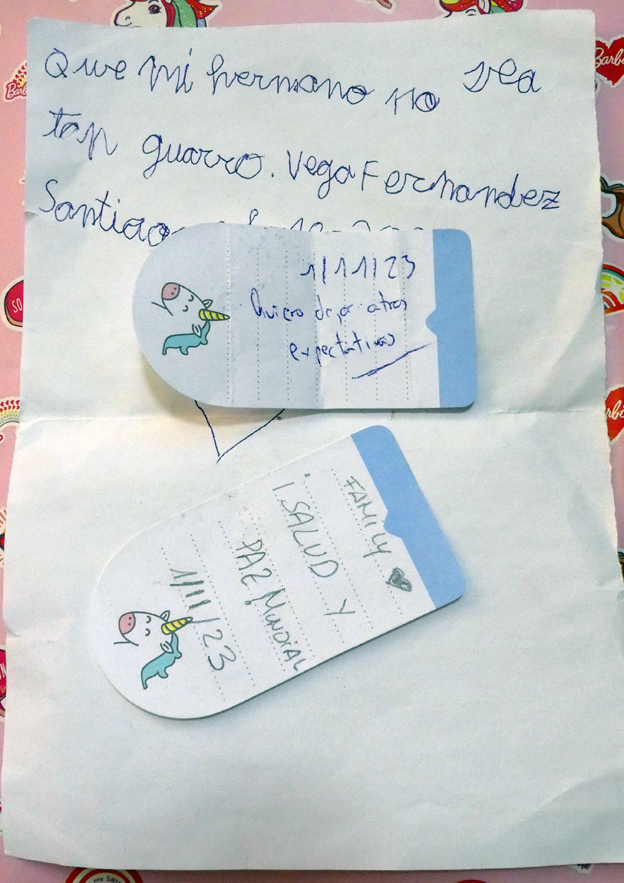 Que mi hermano no sea
tan guarro. Vega Fernandez
Santiago
1/11/23
Quiero dejar atras
expectativas
FAMILY
SALUD Y
PAZ MUNDIAL
1/11/23
Barbie